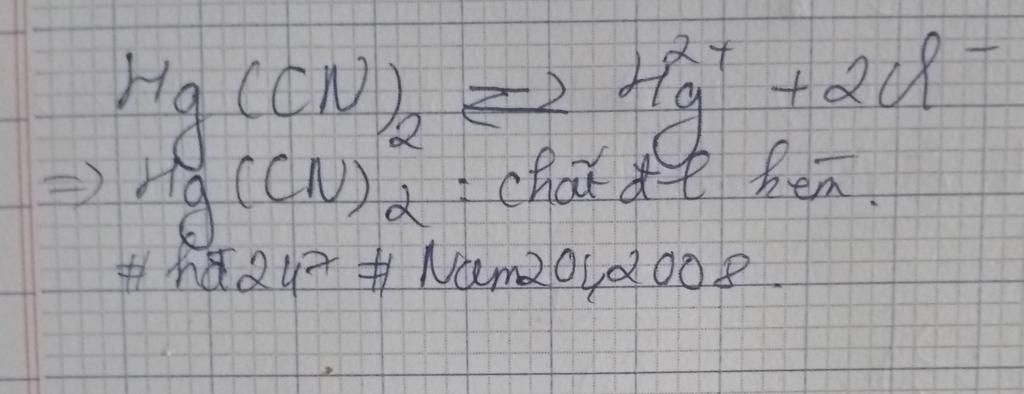 Hg(CN)₂ ⇌ Hg²⁺ + 2Cl⁻
⇒ Hg(CN)₂ : chất đ-l kém.
# hđ247 # Nam2042008.